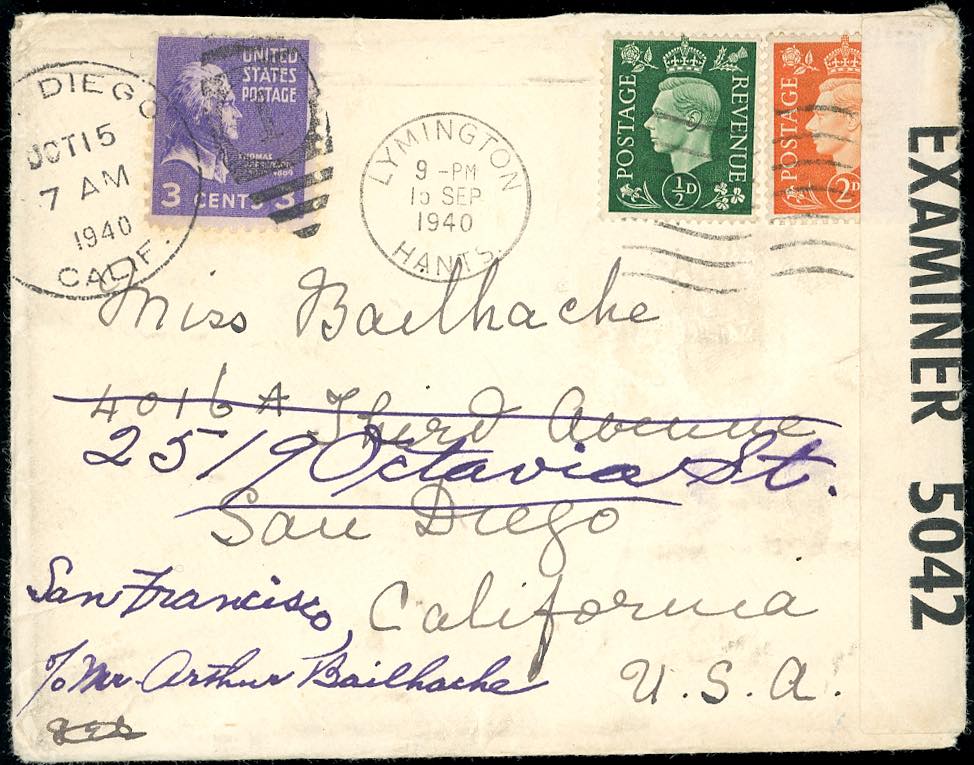 DIEGO
OCT 15
7 AM
1940
CALIF.
UNITED
STATES
POSTAGE
THOMAS
3 CENTS 3
LYMINGTON
9 -PM
15 SEP
1940
HANTS.
POSTAGE
REVENUE
½D
POSTAGE
2D
EXAMINER 5042
Miss Bailhache
4016 A Third Avenue
2519 Octavia St.
San Diego
San Francisco,
California
c/o Mr. Arthur Bailhache
U.S.A.